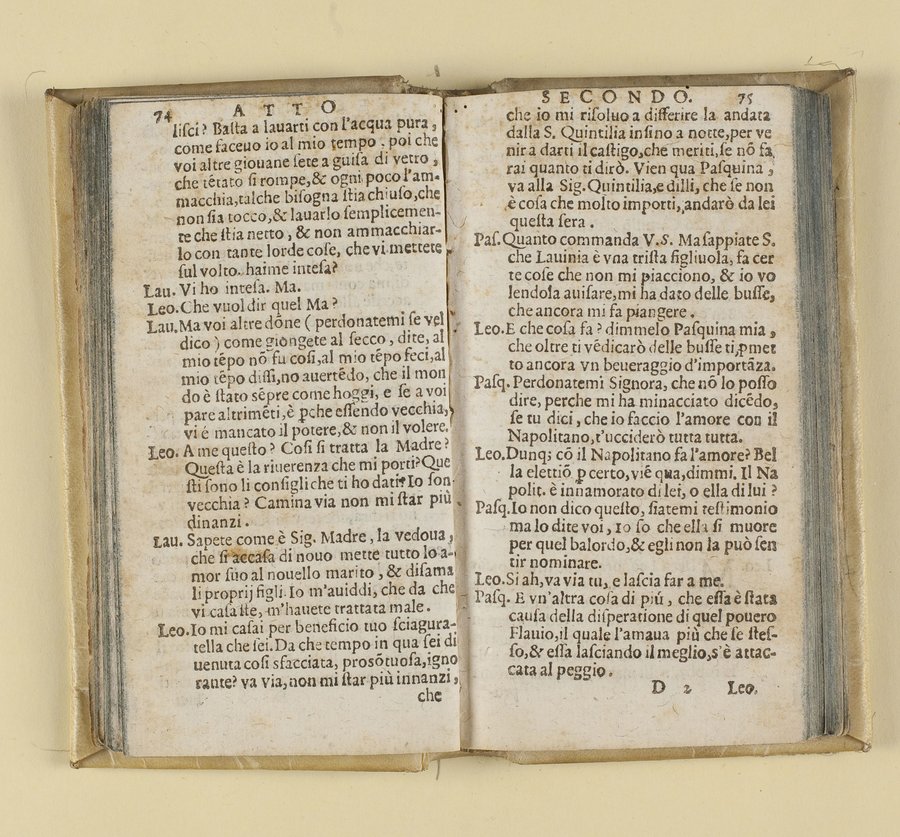 74 ATTO
lisci? Basta a lauarti con l'acqua pura,
come faceuo io al mio tempo. poi che
voi altre giouane sete a guisa di vetro,
che tētato si rompe,& ogni poco l'am-
macchia,talche bisogna stia chiuso,che
non sia tocco,& lauarlo semplicemen-
te che stia netto, & non ammacchiar-
lo con tante lorde cose, che vi mettete
sul volto. haime intesa?
Lau. Vi ho intesa. Ma.
Leo. Che vuol dir quel Ma?
Lau. Ma voi altre dōne ( perdonatemi se vel
dico ) come giongete al secco, dite, al
mio tēpo nō fu cosi,al mio tēpo feci,al
mio tēpo dissi,no auertēdo, che il mon
do è stato sēpre come hoggi, e se a voi
pare altrimēti,è ꝑche essendo vecchia,
vi é mancato il potere,& non il volere.
Leo. A me questo? Cosi si tratta la Madre?
Questa è la riuerenza che mi porti?Que
sti sono li consigli che ti ho dati? Io son
vecchia? Camina via non mi star più
dinanzi.
Lau. Sapete come è Sig. Madre, la vedoua,
che si accasa di nouo mette tutto lo a-
mor suo al nouello marito, & disama
li proprij figli. Io m'auiddi, che da che
vi casaste, m'hauete trattata male.
Leo. Io mi casai per beneficio tuo sciagura-
tella che sei. Da che tempo in qua sei di
uenuta cosi sfacciata, prosōtuosa,igno
rante? va via, non mi star più innanzi,
che
SECONDO. 75
che io mi risoluo a differire la andata
dalla S. Quintilia insino a notte,per ve
nir a darti il castigo,che meriti,se nō fa
rai quanto ti dirò. Vien qua Pasquina,
va alla Sig. Quintilia,e dilli, che se non
è cosa che molto importi, andarò da lei
questa sera.
Pas. Quanto commanda V.S. Ma sappiate S.
che Lauinia è vna trista figliuola, fa cer
te cose che non mi piacciono, & io vo
lendola auisare,mi ha dato delle busse,
che ancora mi fa piangere.
Leo. E che cosa fa? dimmelo Pasquina mia,
che oltre ti vēdicarò delle busse ti,ꝑmet
to ancora vn beueraggio d'importāza.
Pasq. Perdonatemi Signora, che nō lo posso
dire, perche mi ha minacciato dicēdo,
se tu dici, che io faccio l'amore con il
Napolitano,t'ucciderò tutta tutta.
Leo. Dunq; cō il Napolitano fa l'amore? Bel
la elettiō ꝑ certo, viē qua,dimmi. Il Na
polit. è innamorato di lei, o ella di lui?
Pasq. Io non dico questo, siatemi testimonio
ma lo dite voi, io so che ella si muore
per quel balordo,& egli non la può sen
tir nominare.
Leo. Si ah, va via tu, e lascia far a me.
Pasq. E vn'altra cosa di piú, che essa è stata
causa della disperatione di quel pouero
Flauio,il quale l'amaua più che se stes-
so,& essa lasciando il meglio,s'è attac-
cata al peggio.
D 2 Leo.